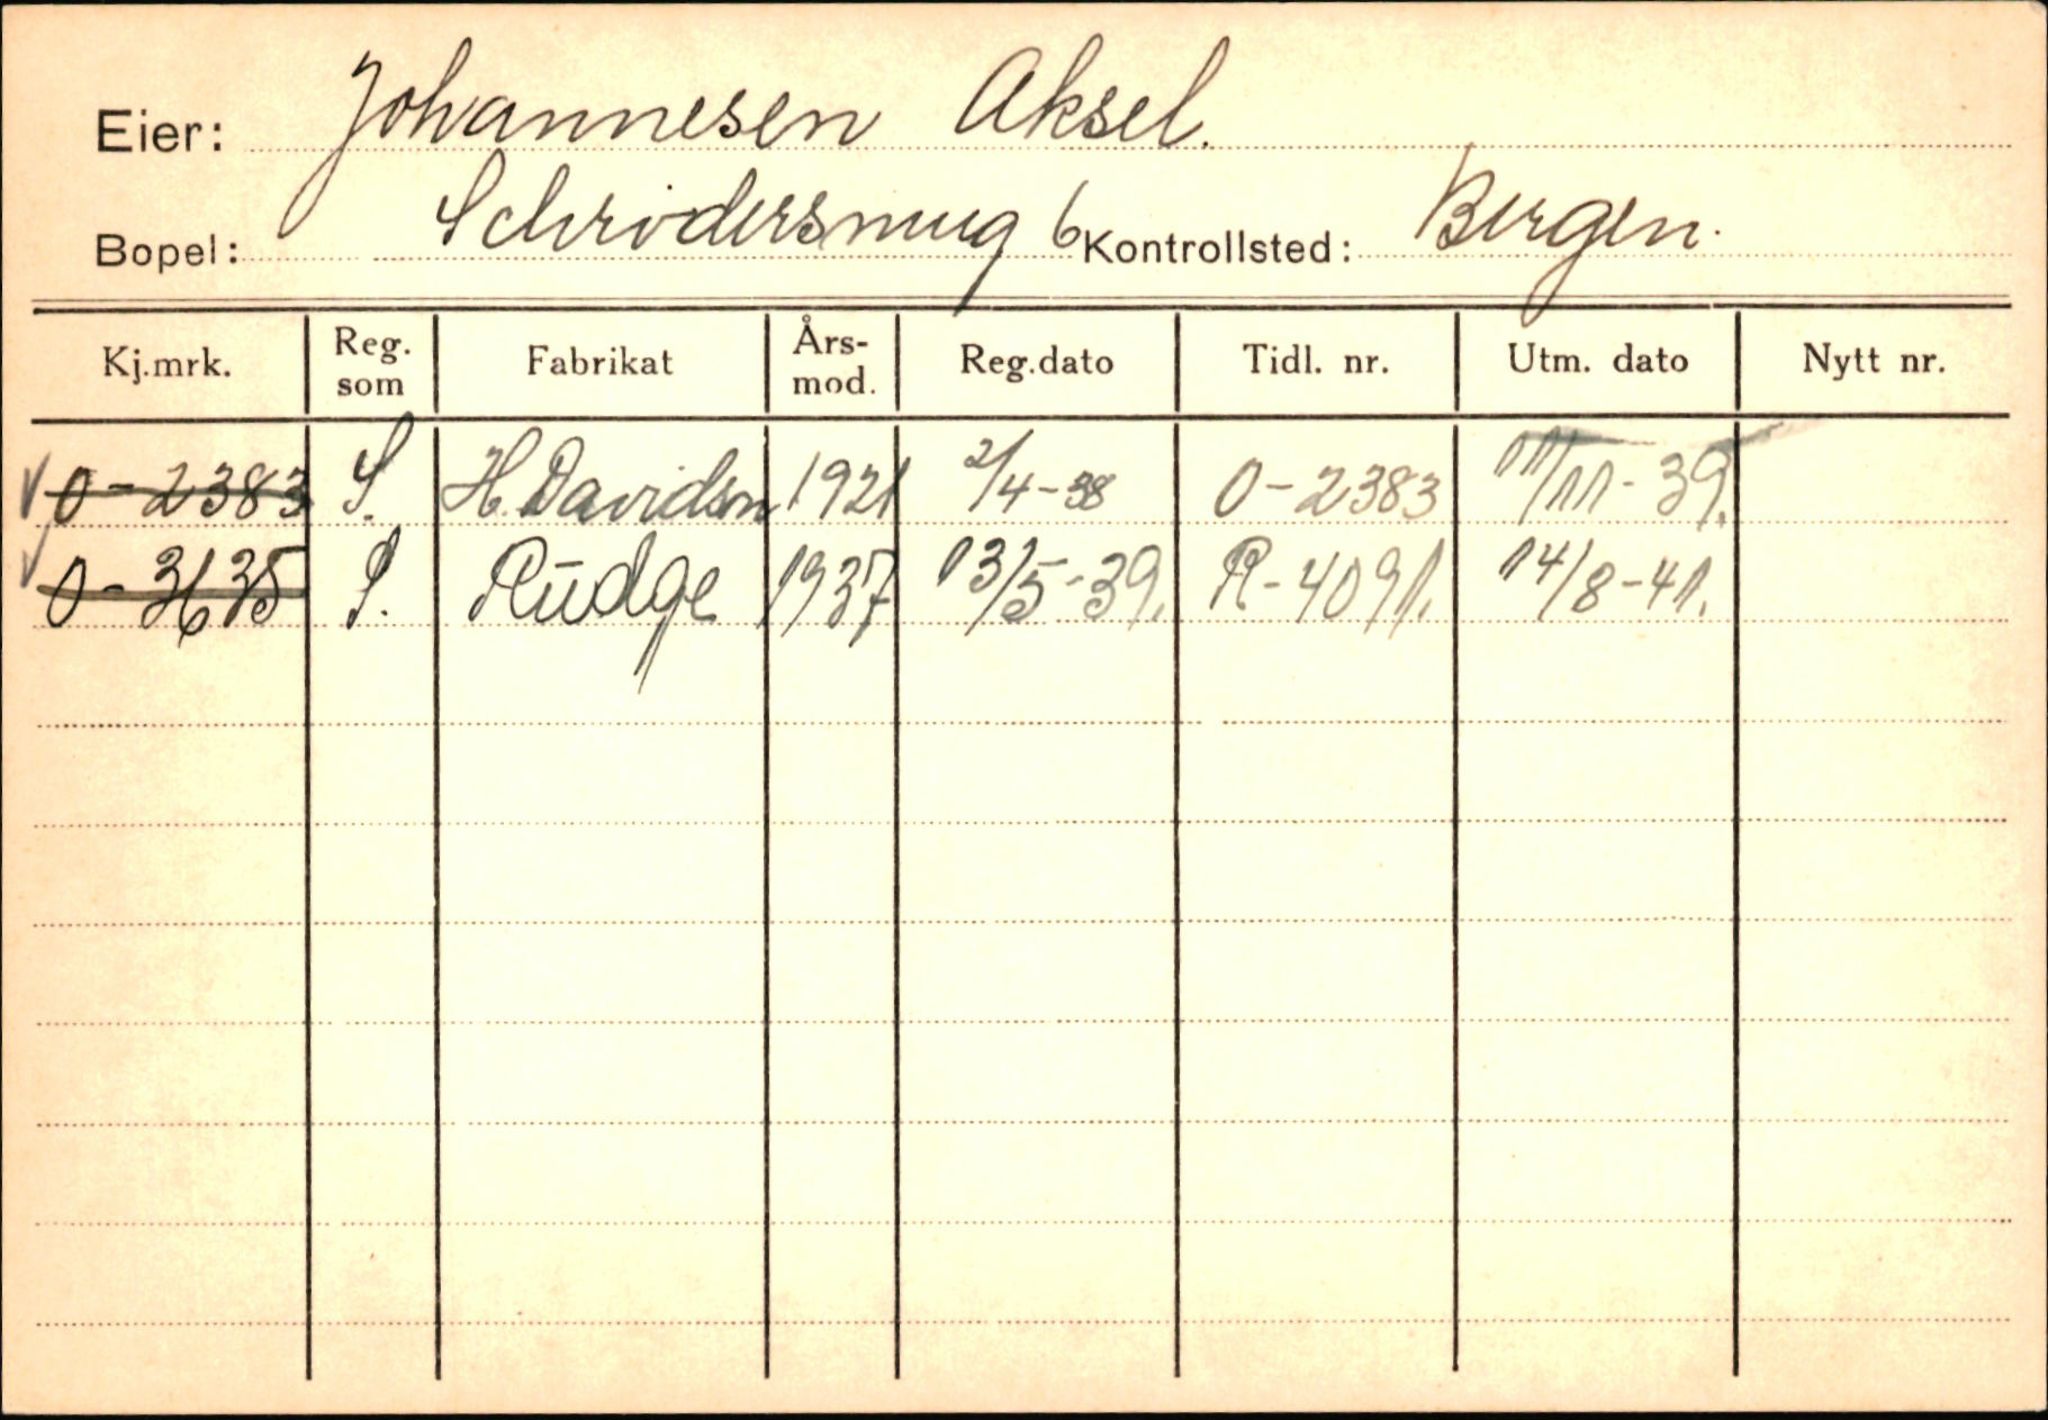 Eier: Johannesen Aksel.
Bopel: Schrödersmug 6 Kontrollsted: Bergen.
Kj.mrk. Reg. som Fabrikat Års-mod. Reg.dato Tidl. nr. Utm. dato Nytt nr.
O-2383 S. H. Davidson 1921 2/4-38 O-2383 11/11-39.
O-3635 S. Rudge 1937 13/5-39. R-4091. 14/8-41.